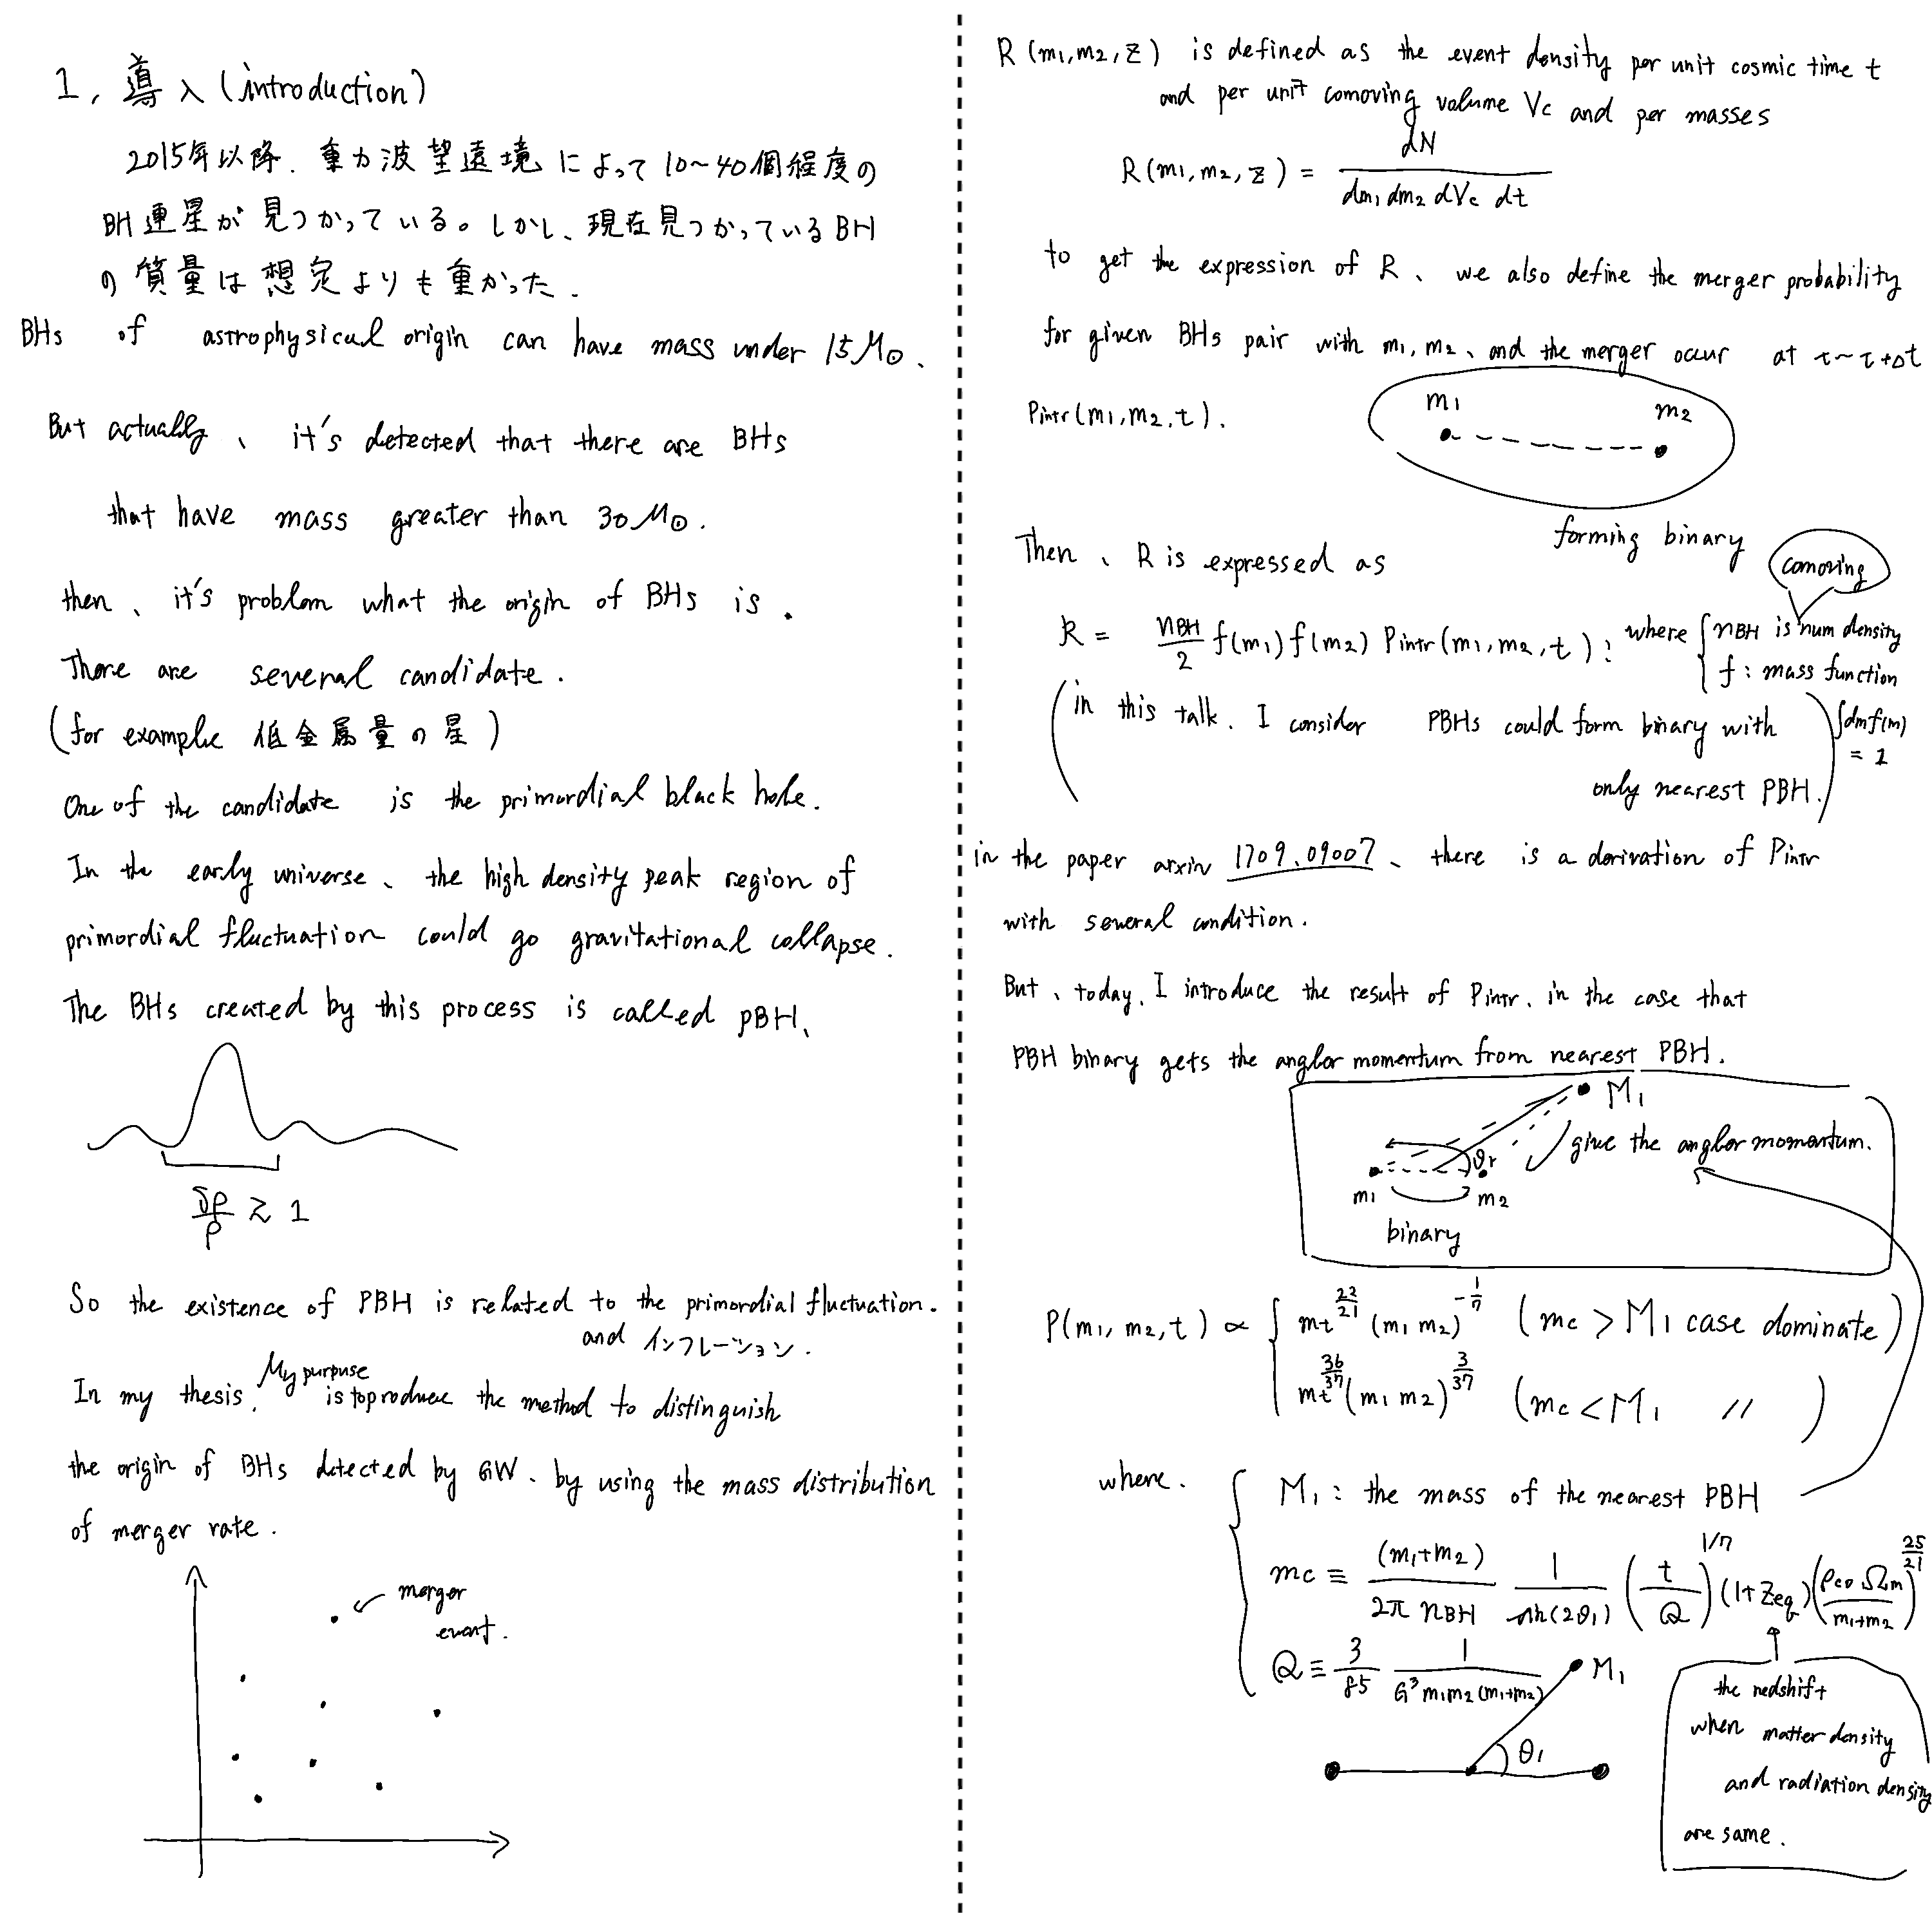 1, 導入(introduction)
2015年以降. 重力波望遠境によって10~40個程度の
BH連星が見つかっている。しかし、現在見つかっているBH
の質量は想定よりも重かった.
BHs of astrophysical origin can have mass under 15M⊙.
But actually、it's detected that there are BHs
that have mass greater than 30M⊙.
then、it's problem what the origin of BHs is.
There are several candidate.
(for example 低金属量の星)
One of the candidate is the primordial black hole.
In the early universe、the high density peak region of
primordial fluctuation could go gravitational collapse.
The BHs created by this process is called PBH,
δρ/ρ ≳ 1
So the existence of PBH is related to the primordial fluctuation.
and インフレーション.
In my thesis, My purpuse is to produce the method to distinguish
the origin of BHs detected by GW、by using the mass distribution
of merger rate.
merger
event.
R(m1,m2,z) is defined as the event density per unit cosmic time t
and per unit comoving volume Vc and per masses
R(m1,m2,z) = dN / dm1 dm2 dVc dt
to get the expression of R、we also define the merger probability
for given BHs pair with m1,m2、and the merger occur at τ~τ+Δt
Pintr(m1,m2,t).
m1 m2
forming binary
Then、R is expressed as
comoving
R = nBH/2 f(m1)f(m2) Pintr(m1,m2,t) : where { nBH is num density
f : mass function
(in this talk. I consider PBHs could form binary with
only nearest PBH.)
∫dmf(m)
= 1
in the paper arxiv 1709.09007、there is a derivation of Pintr
with several condition.
But、today, I introduce the result of Pintr. in the case that
PBH binary gets the anglar momentum from nearest PBH.
M1
give the anglar momentum.
θr
m1 m2
binary
P(m1,m2,t) ∝ { mt^{22/21} (m1 m2)^{-1/7} (mc > M1 case dominate)
mt^{36/37} (m1 m2)^{3/37} (mc < M1 〃 )
where. { M1 : the mass of the nearest PBH
mc ≡ (m1+m2)/(2π nBH) 1/sin(2θ1) (t/Q)^{1/7} (1+zeq) (ρc0 Ωm/(m1+m2))^{25/21}
Q ≡ 3/85 1/(G³m1m2(m1+m2))
M1
θ1
the redshift
when matter density
and radiation density
are same.